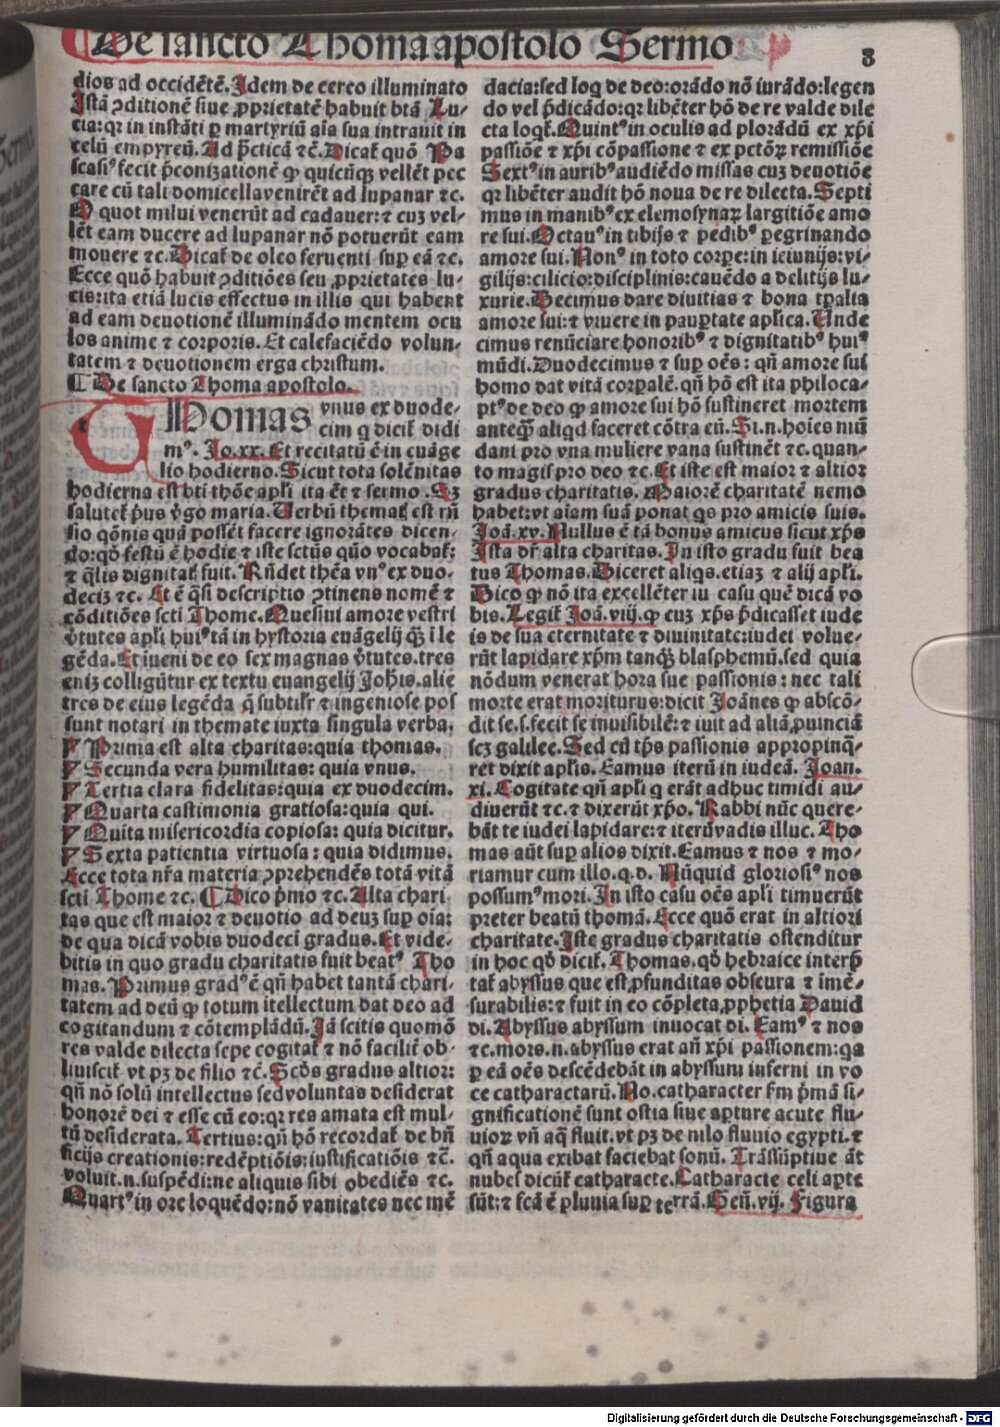 De sancto Thoma apostolo Sermo
8
dios ad occidẽtẽ. Idem de cereo illuminato
Istã ↄditionẽ siue ꝓprietatẽ habuit btã Lu-
cia: qꝛ in instãti ꝑ martyriũ aĩa sua intrauit in
celũ empyreũ. Ad p̃cticã ⁊c̃. Dicat᷑ quõ Pa
scasiꝰ fecit p̃conizationẽ ꝙ quicũqꝫ vellẽt pec
care cũ tali domicella venirẽt ad lupanar ⁊c.
O quot milui venerũt ad cadauer: ⁊ cuꝫ vel-
lẽt eam ducere ad lupanar nõ potuerũt eam
mouere ⁊c. Dicat᷑ de oleo feruenti suꝑ eã ⁊c.
Ecce quõ habuit ↄditiões seu ꝓprietates lu-
cis: ita etiã lucis effectus in illis qui habent
ad eam deuotionẽ illuminãdo mentem ocu
los anime ⁊ corporis. Et calefaciẽdo volun-
tatem ⁊ deuotionem erga christum.
¶ De sancto Thoma apostolo.
THomas vnus ex duode-
cim q dicit᷑ didi
mꝰ. Jo. xx. Et recitatũ ẽ in euãge
lio hodierno. Sicut tota solẽnitas
hodierna est bti thõe apl̃i ita ẽt ⁊ sermo. Sꝫ
salutet᷑ p̃us v̾go maria. Verbũ thematꝭ est rñ
sio q̃onis quã possẽt facere ignorãtes dicen-
do: qd̾ festũ ẽ hodie ⁊ iste sctũs quõ vocabat᷑:
⁊ q̃lis dignitatꝭ fuit. Rñdet thẽa vnꝰ ex duo-
deciꝫ ⁊c. Et ẽ q̃si descriptio ↄtinens nomẽ ⁊
cõditiões scti Thome. Quesiui amore vestri
v̾tutes apl̃i huiꝰ tã in hystoria euãgelij qꝫ̃ i le
gẽda. Et iueni de eo sex magnas v̾tutes. tres
eniꝫ colligũtur ex textu euangelij Joh̃is. alie
tres de eius legẽda q̃ subtilr̃ ⁊ ingeniose pos
sunt notari in themate iuxta singula verba.
¶ Prima est alta charitas: quia thomas.
¶ Secunda vera humilitas: quia vnus.
¶ Tertia clara fidelitas: quia ex duodecim.
¶ Quarta castimonia gratiosa: quia qui.
¶ Quita misericordia copiosa: quia dicitur.
¶ Sexta patientia virtuosa: quia didimus.
Ecce tota nr̃a materia ↄprehendẽs totã vitã
scti Thome ⁊c. ¶ Dico p̃mo ⁊c. Alta chari
tas que est maior ⁊ deuotio ad deuꝫ suꝑ oĩa:
de qua dicã vobis duodecĩ gradus. Et vide-
bitis in quo gradu charitatis fuit beatꝰ Tho
mas. Primus gradꝰ ẽ qñ habet tantã chari-
tatem ad deũ ꝙ totum itellectum dat deo ad
cogitandum ⁊ cõtemplãdũ. Jã scitis quomõ
res valde dilecta sepe cogitat᷑ ⁊ nõ facilit̾ ob-
liuiscit᷑ vt pꝫ de filio ⁊c̃. Scd̾s gradus altior:
qñ nõ solũ intellectus sed voluntas desiderat
honorẽ dei ⁊ esse cũ eo: qꝛ res amata est mul-
tũ desiderata. Tertius: qñ hõ recordat᷑ de bñ
ficijs creationis: redẽptiõis: iustificatiõis ⁊c̃.
voluit. n. suspẽdi: ne aliquis sibi obediẽs ⁊c.
Quartꝰ in ore loquẽdo: nõ vanitates nec mẽ
dacia: sed loq de deo: orãdo nõ iurãdo: legen
do vel p̃dicãdo: qꝛ libẽter hõ de re valde dile
cta loqt᷑. Quintꝰ in oculis ad plorãdũ ex xp̃i
passiõe ⁊ xp̃i cõpassione ⁊ ex pctõꝝ remissiõe
Sextꝰ in auribꝰ audiẽdo missas cuꝫ deuotiõe
qꝛ libẽter audit hõ noua de re dilecta. Septi
mus in manibꝰ ex elemosynaꝝ largitiõe amo
re sui. Octauꝰ in tibijs ⁊ pedibꝰ ꝑegrinando
amore sui. Nonꝰ in toto corꝑe: in ieiunijs: vi-
gilijs: cilicio: disciplinis: cauẽdo a delitijs lu-
xurie. Decimus dare diuitias ⁊ bona tꝑalia
amore sui: ⁊ viuere in pauꝑtate apl̃ica. Unde
cimus renũciare honoribꝰ ⁊ dignitatibꝰ huiꝰ
mũdi. Duodecimus ⁊ suꝑ oẽs: qñ amore sui
homo dat vitã corꝑalẽ. qñ hõ est ita philoca-
ptꝰ de deo ꝙ amore sui hõ sustineret mortem
anteqꝫ̃ aliqd faceret cõtra eũ. Si. n. hoĩes mũ
dani pro vna muliere vana sustinẽt ⁊c. quan-
to magis pro deo ⁊c. Et iste est maior ⁊ altior
gradus charitatis. Maiorẽ charitatẽ nemo
habet: vt aĩam suã ponat qs pro amicis suis.
Joã. xv. Nullus ẽ tã bonus amicus sicut xp̃s
Ista dr̃ alta charitas. In isto gradu fuit bea
tus Thomas. Diceret aliqs. etiaꝫ ⁊ alij apl̃i.
Dico ꝙ nõ ita excellẽter iu casu quẽ dicã vo
bis. Legit᷑ Joã. viij. ꝙ cuꝫ xp̃s p̃dicasset iude
is de sua eternitate ⁊ diuinitate: iudei volue-
rũt lapidare xp̃m tanqꝫ̃ blasphemũ. sed quia
nõdum venerat hora sue passionis: nec tali
morte erat moriturus: dicit Joãnes ꝙ abscõ-
dit se. s. fecit se inuisibilẽ: ⁊ iuit ad aliã ꝓuinciã
scꝫ galilee. Sed cũ tp̃s passionis appropinq̃-
ret dixit apl̃is. Eamus iterũ in iudeã. Joan.
xi. Cogitate qñ apl̃i q erãt adhuc timidi au-
diuerũt ⁊c. ⁊ dixerũt xp̃o. Rabbi nũc quere-
bãt te iudei lapidare: ⁊ iterũ vadis illuc. Tho
mas aũt suꝑ alios dixit. Eamus ⁊ nos ⁊ mo-
riamur cum illo. q. d. Nũquid gloriosiꝰ nos
possumꝰ mori. In isto casu oẽs apl̃i timuerũt
preter beatũ thomã. Ecce quõ erat in altiori
charitate. Iste gradus charitatis ostenditur
in hoc qd̾ dicit᷑. Thomas. qd̾ hebraice interp̃
tat᷑ abyssus que est ꝓfunditas obscura ⁊ imẽ-
surabilis: ⁊ fuit in eo cõpleta ꝓphetia Dauid
di. Abyssus abyssum inuocat di. Eamꝰ ⁊ nos
⁊c. mors. n. abyssus erat añ xp̃i passionem: qa
ꝑ eã oẽs descẽdebãt in abyssum inferni in vo
ce catharactarũ. No. catharacter s̾m p̃mã si-
gnificationẽ sunt ostia siue aꝑture acute flu-
uioꝝ vñ aq̃ fluit. vt pꝫ de nilo fluuio egypti. ⁊
qñ aqua exibat faciebat sonũ. Trãssũptiue ãt
nubes dicũt᷑ catharacte. Catharacte celi aꝑte
sũt: ⁊ fcã ẽ pluuia suꝑ terrã. Geñ. vij. Figura
Digitalisierung gefördert durch die Deutsche Forschungsgemeinschaft - DFG